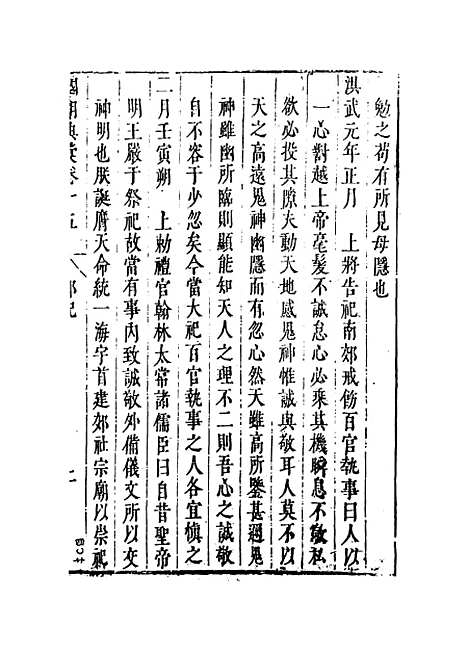 勉之苟有所見毋隱也
洪武元年正月　上將告祀南郊戒飭百官執事曰人以
一心對越上帝毫髮不誠怠心必乘其機瞬息不敬私
欲必投其隙夫動天地感鬼神惟誠與敬耳人莫不以
天之高遠鬼神幽隱而有忽心然天雖高所鑒甚邇鬼
神雖幽所臨則顯能知天人之理不二則吾心之誠敬
自不容于少忽矣今當大祀百官執事之人各宜慎之
二月壬寅朔　上勑禮官翰林太常諸儒臣曰自昔聖帝
明王嚴于祭祀故當有事內致誠敬外備儀文所以交
神明也朕誕膺天命統一海宇首建郊社宗廟以崇祀
國朝典彙卷十五　郊祀　二
四〇七